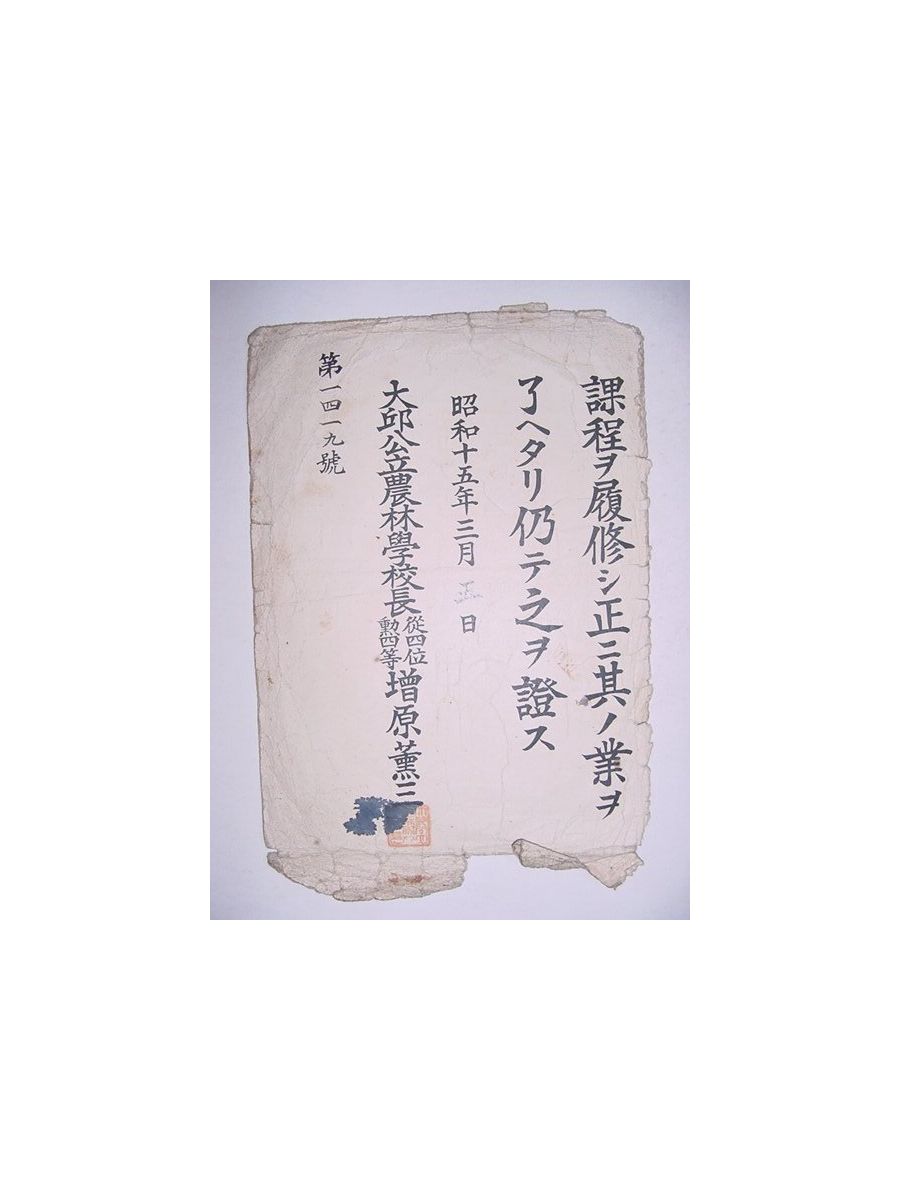 課程ヲ履修シ正ニ其ノ業ヲ
了ヘタリ仍テ之ヲ證ス
昭和十五年三月五日
大邱公立農林學校長從四位勳四等增原薫三
第一四一九號